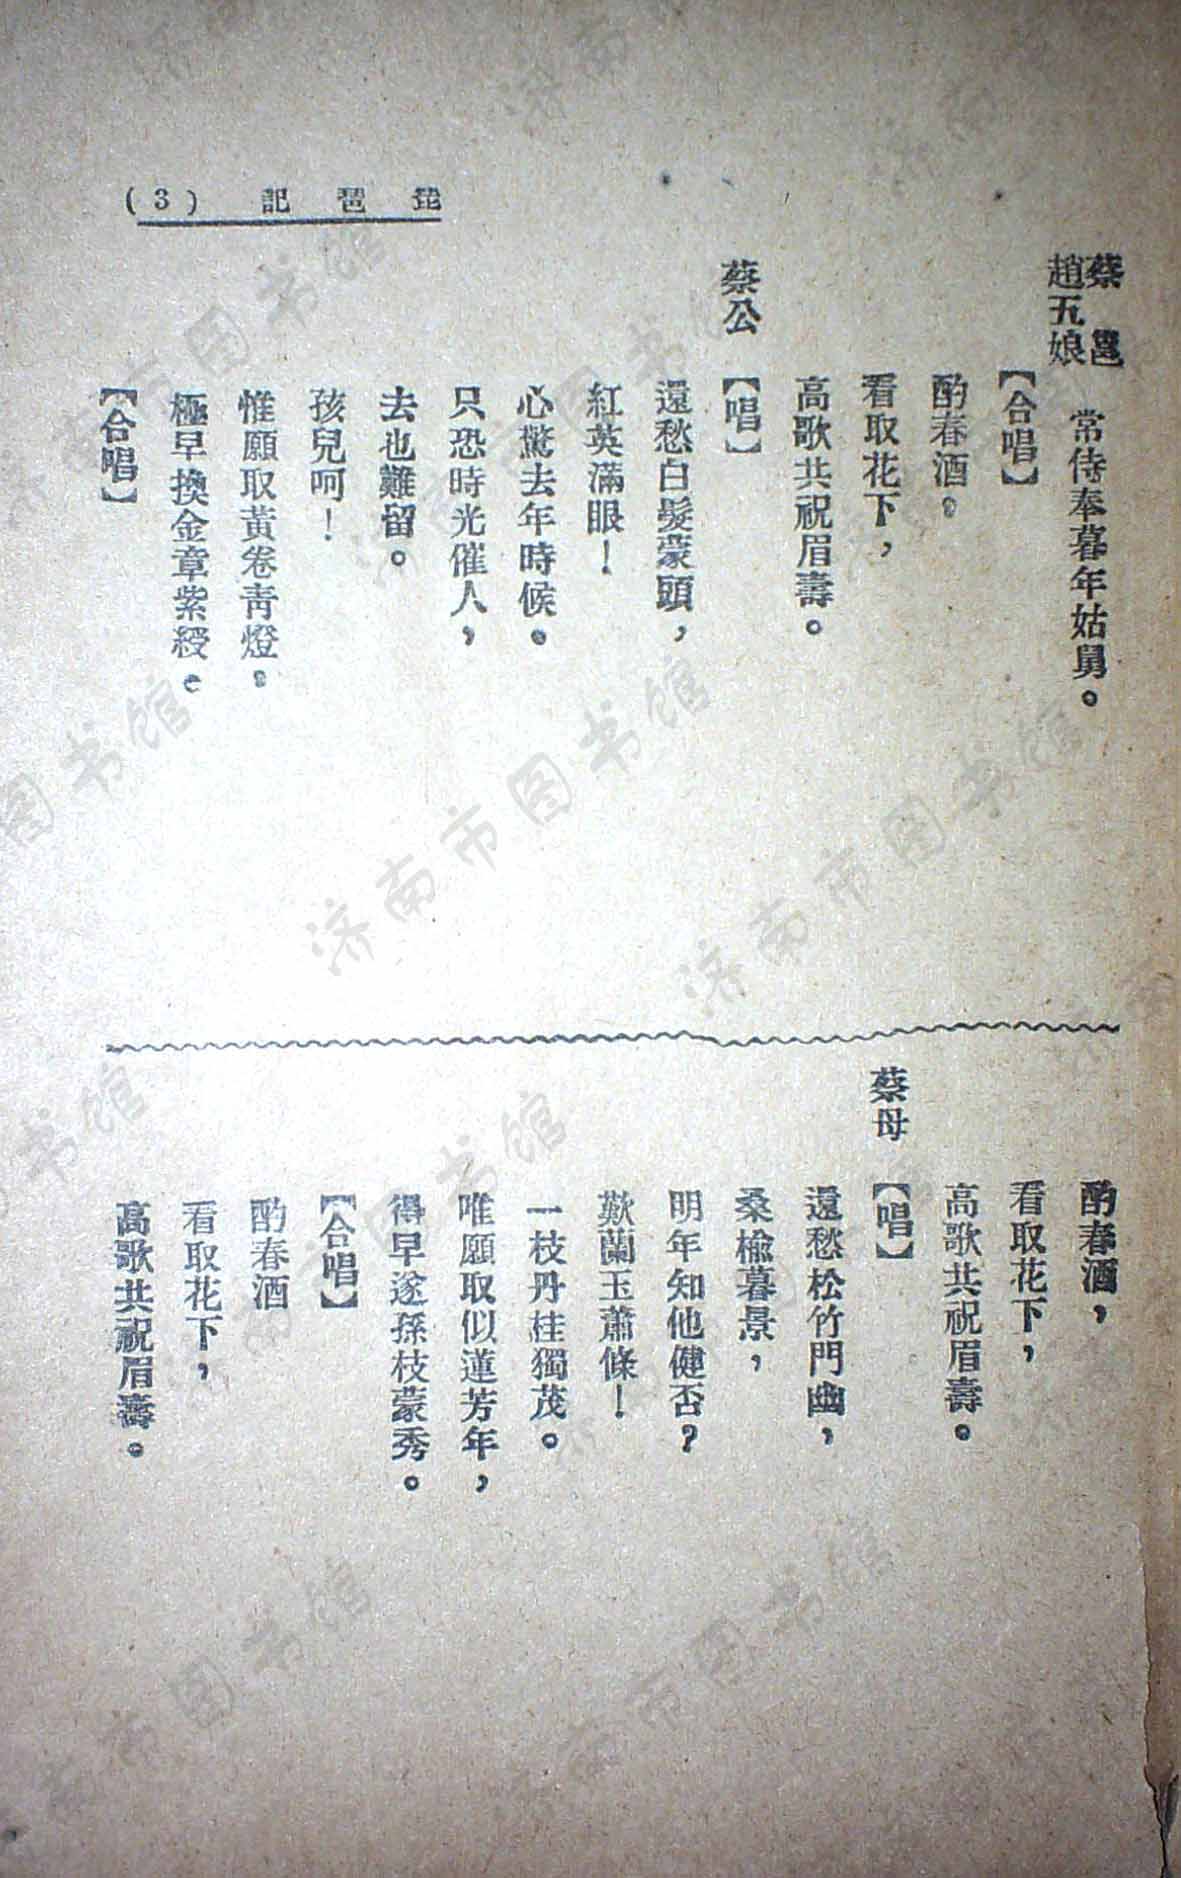 琵琶記 (3)
蔡邕
趙五娘 常侍奉暮年姑舅。
【合唱】
酌春酒。
看取花下，
高歌共祝眉壽。
蔡公【唱】
還愁白髮蒙頭，
紅英滿眼！
心驚去年時候。
只恐時光催人，
去也難留。
孩兒呵！
惟願取黃卷青燈。
極早換金章紫綬。
【合唱】
酌春酒，
看取花下，
高歌共祝眉壽。
蔡母【唱】
還愁松竹門幽，
桑榆暮景，
明年知他健否？
歎蘭玉蕭條！
一枝丹桂獨茂。
唯願取似蓮芳年，
得早遂孫枝蒙秀。
【合唱】
酌春酒
看取花下，
高歌共祝眉壽。
济南市图书馆